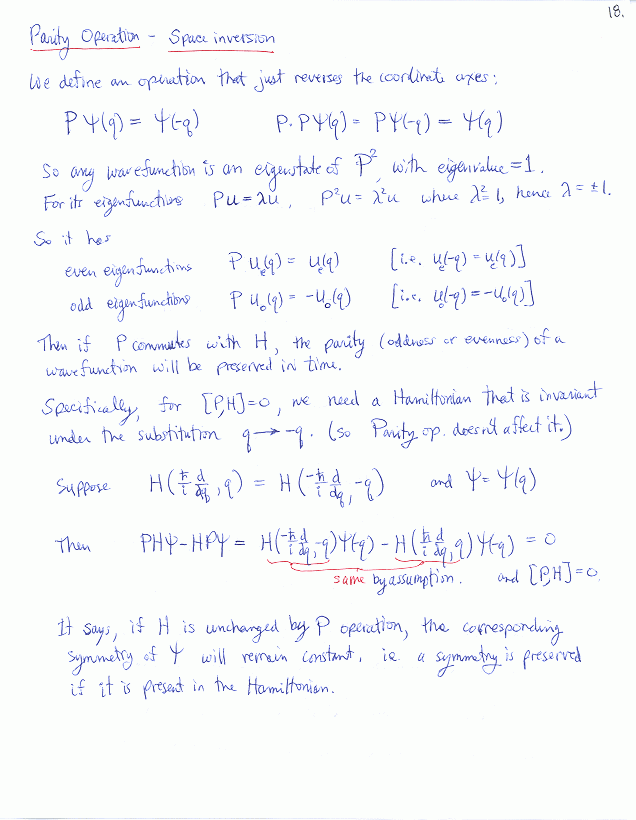 18.
Parity Operation - Space inversion
We define an operation that just reverses the coordinate axes:
PΨ(q) = Ψ(-q)    P·PΨ(q) = PΨ(-q) = Ψ(q)
So any wavefunction is an eigenstate of P², with eigenvalue = 1.
For its eigenfunctions Pu = λu, P²u = λ²u where λ² = 1, hence λ = ±1.
So it has
even eigenfunctions P u_e(q) = u_e(q) [i.e. u_e(-q) = u_e(q)]
odd eigenfunctions P u_o(q) = -u_o(q) [i.e. u_o(-q) = -u_o(q)]
Then if P commutes with H, the parity (oddness or evenness) of a
wavefunction will be preserved in time.
Specifically, for [P,H]=0, we need a Hamiltonian that is invariant
under the substitution q → -q. (so Parity op. doesn't affect it.)
Suppose H(ħ/i d/dq, q) = H(-ħ/i d/dq, -q) and Ψ = Ψ(q)
Then PHΨ - HPΨ = H(-ħ/i d/dq, -q)Ψ(-q) - H(ħ/i d/dq, q)Ψ(-q) = 0
same by assumption. and [P,H]=0.
It says, if H is unchanged by P operation, the corresponding
symmetry of Ψ will remain constant, i.e. a symmetry is preserved
if it is present in the Hamiltonian.